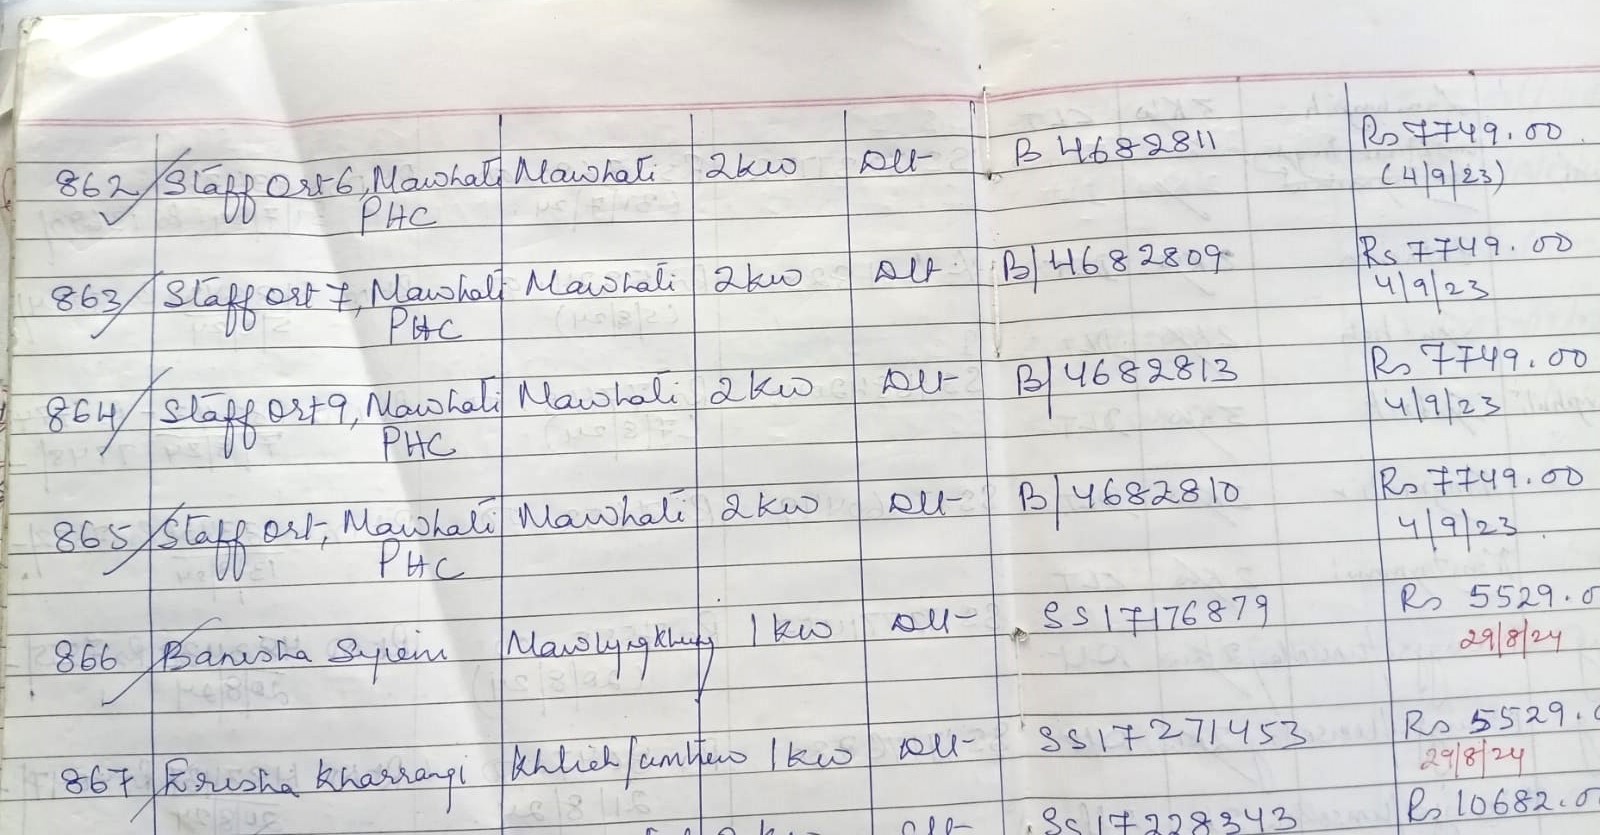 862 Staff Qrt 6, Mawhati Mawhati 2kw DLT B 4682811 Rs 7749.00
PHC (4/9/23)
863 Staff Qrt 7, Mawhati Mawhati 2kw DLT B/4682809 Rs 7749.00
PHC 4/9/23
864 Staff Qrt 9, Mawhati Mawhati 2kw DLT B/4682813 Rs 7749.00
PHC 4/9/23
865 Staff Qrt, Mawhati Mawhati 2kw DLT B/4682810 Rs 7749.00
PHC 4/9/23
866 Banisha Syiem Mawlyngkhung 1kw DLT SS17176879 Rs 5529.0
29/8/24
867 Erisha Kharrangi Khlieh Umtrew 1kw DLT SS17271453 Rs 5529.0
29/8/24
SS17228343 Rs 10682.0